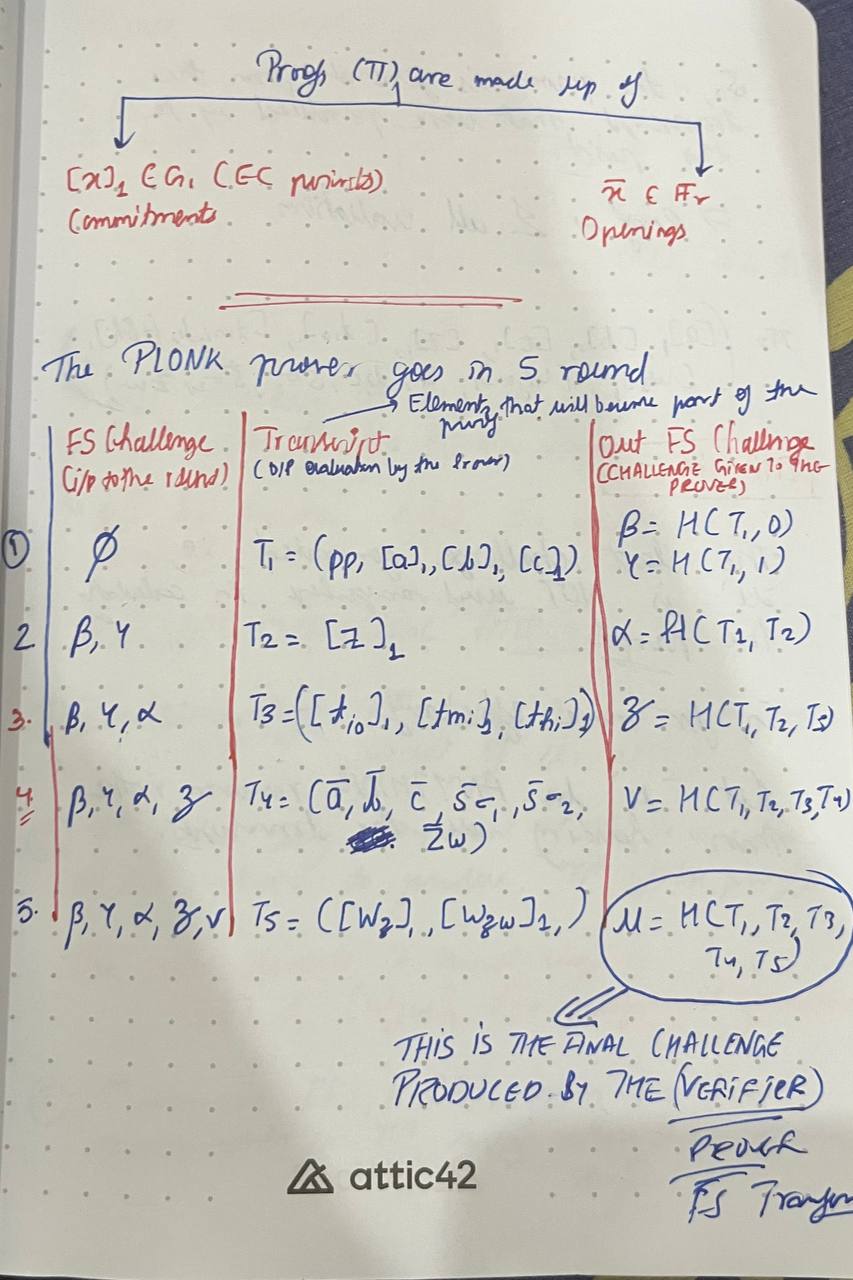 Proofs (π) are made up of
[x]₁ ∈ G₁ (EC points)
Commitments
x̄ ∈ Fr
Openings
The PLONK prover goes in 5 round
→ Elements that will become part of the
FS Challenge
(i/p to the round)
Transcript
(O/P evaluation by the Prover)
Out FS Challenge
(CHALLENGE GIVEN TO THE
PROVER)
① ∅ T₁ = (pp, [a]₁, [b]₁, [c]₁) β = H(T₁, 0)
γ = H(T₁, 1)
2 β, γ T₂ = [z]₁ α = H(T₁, T₂)
3. β, γ, α T₃ = ([t_lo]₁, [t_mi]₁, [t_hi]₁) z = H(T₁, T₂, T₃)
4 β, γ, α, z T₄ = (ā, b̄, c̄, s̄σ₁, s̄σ₂, v = H(T₁, T₂, T₃, T₄)
z̄ω)
5. β, γ, α, z, v T₅ = ([W_z]₁, [W_zω]₁,) μ = H(T₁, T₂, T₃,
T₄, T₅)
THIS IS THE FINAL CHALLENGE
PRODUCED BY THE (VERIFIER)
PROVER
FS Transform
attic42